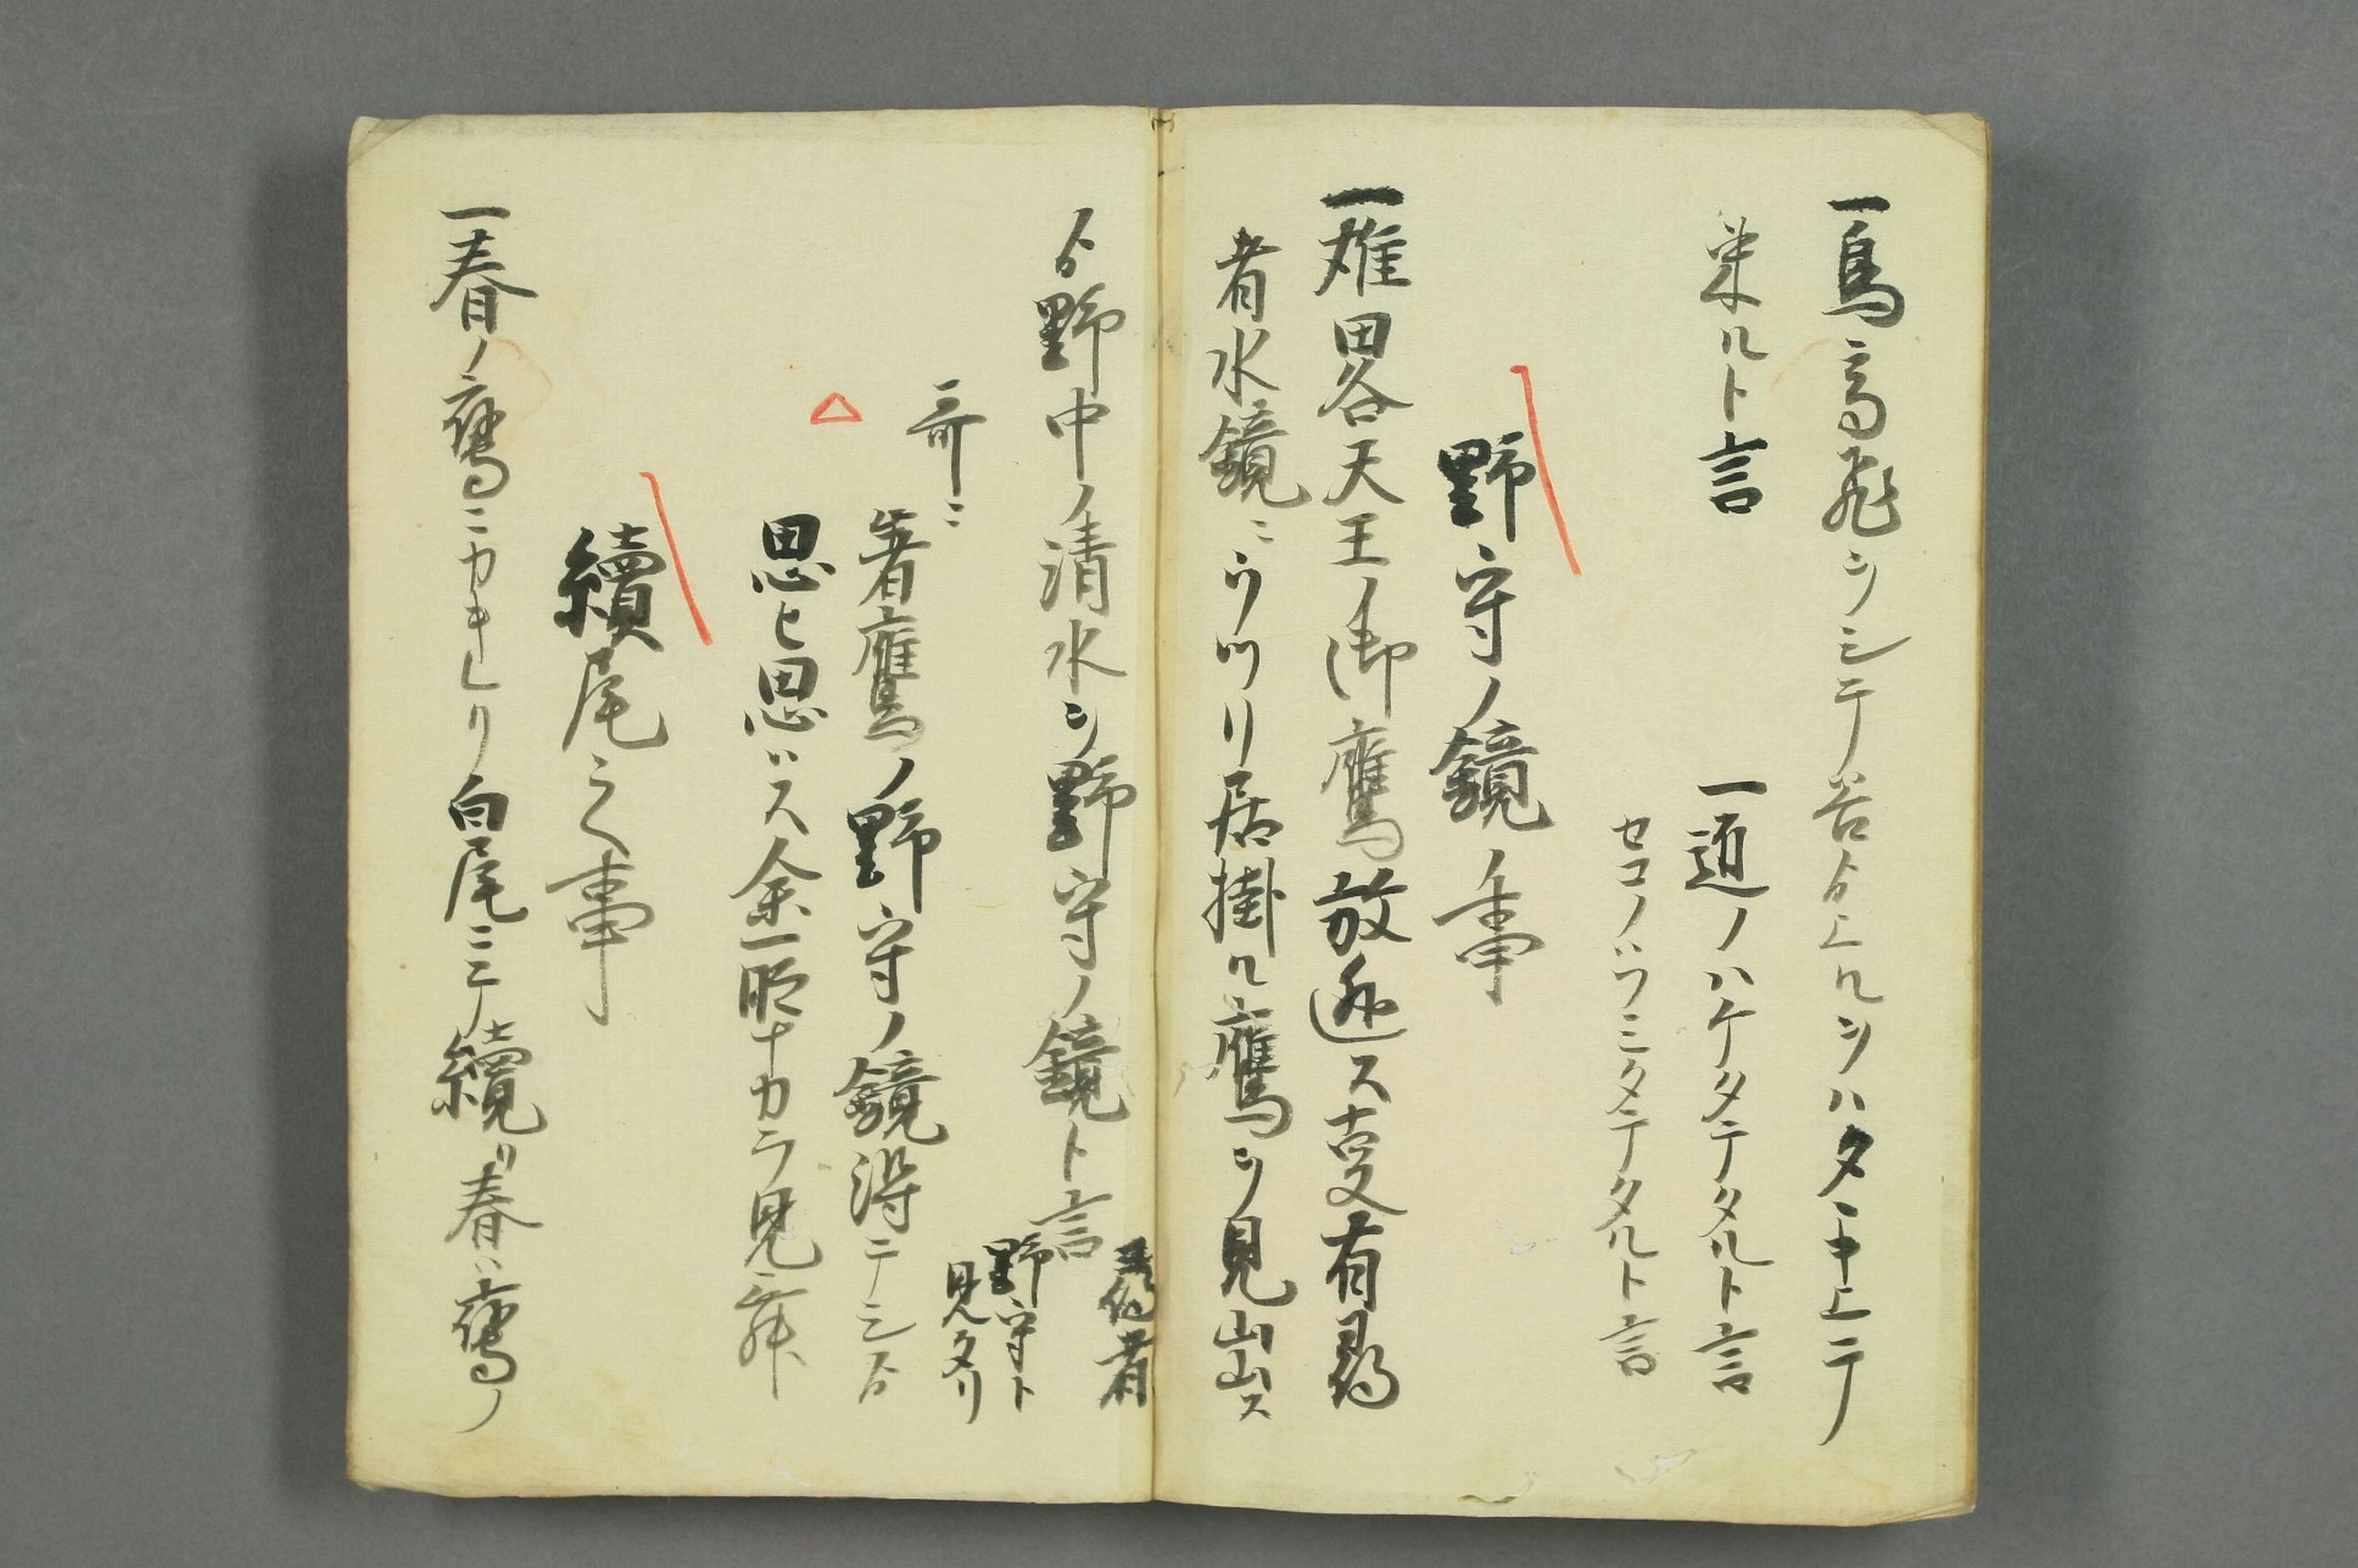 一鳥高飛ヲシテ谷ゟ上ルヲハタヽキ上テ
来ルト言
一迫ノハケタテタルト言
セコノバツミタテタルト言
野守ノ鏡ノ事
一雄畧天王ノ御鷹放迯ス叓有尋
者水鏡ニウツリ居掛ル鷹ヲ見出ス
ゟ野中ノ清水ヲ野守ノ鏡ト言
者
野守ト
見タリ
哥ニ
箸鷹ノ野守ノ鏡得テシゟ
思ヒ思バス余所ナカラ見
續尾之事
一春ノ鶯ニカキレリ白尾ニテ續リ春ハ鶯ノ